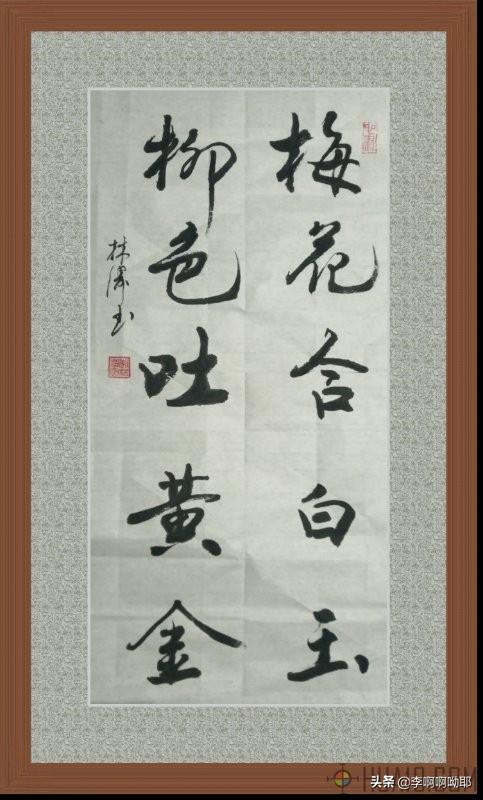 梅花含白玉
柳色吐黄金
头条 @李啊啊呦耶